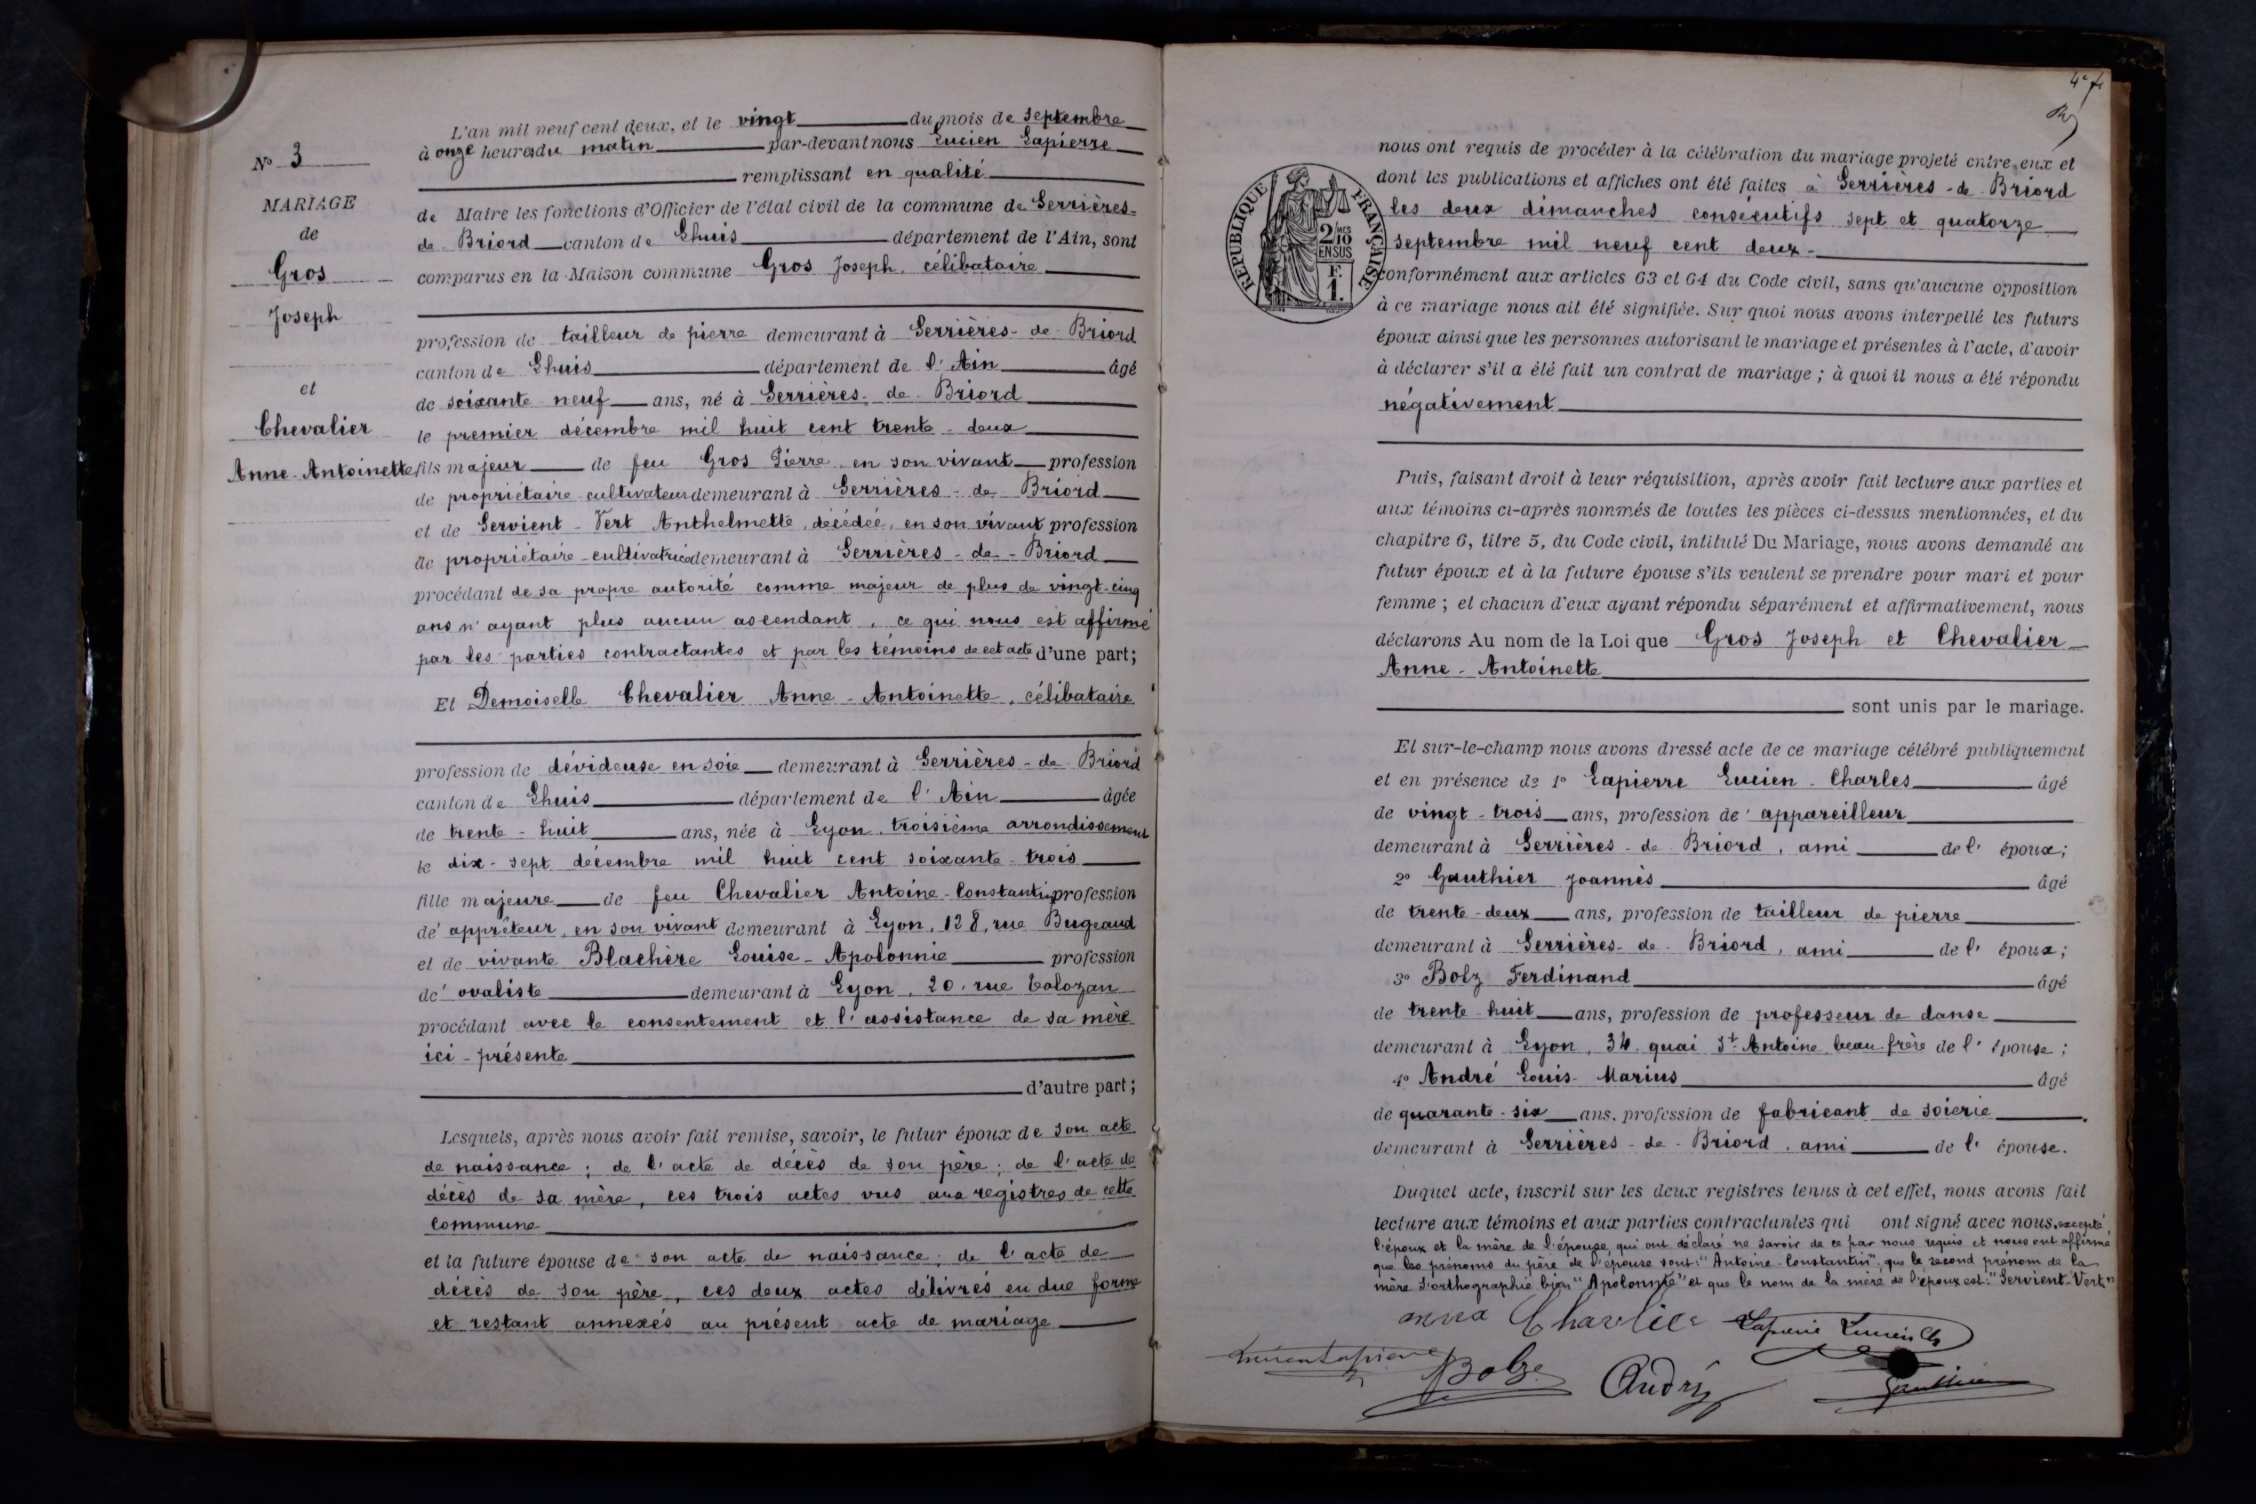 N° 3
MARIAGE
de
Gros
Joseph
et
Chevalier
Anne-Antoinette
L'an mil neuf cent deux, et le vingt du mois de septembre
à onze heures du matin par-devant nous Lucien Lapierre
remplissant en qualité
de Maire les fonctions d'Officier de l'état civil de la commune de Serrières-
de-Briord canton de Lhuis département de l'Ain, sont
comparus en la Maison commune Gros Joseph, célibataire
profession de tailleur de pierre demeurant à Serrières-de-Briord
canton de Lhuis département de l'Ain âgé
de soixante-neuf ans, né à Serrières-de-Briord
le premier décembre mil huit cent trente-deux
fils majeur de feu Gros Pierre en son vivant profession
de propriétaire-cultivateur demeurant à Serrières-de-Briord
et de Servient-Vert Anthelmette, décédée, en son vivant profession
de propriétaire-cultivatrice demeurant à Serrières-de-Briord
procédant de sa propre autorité comme majeur de plus de vingt-cinq
ans n'ayant plus aucun ascendant, ce qui nous est affirmé
par les parties contractantes et par les témoins de cet acte d'une part;
Et Demoiselle Chevalier Anne-Antoinette, célibataire
profession de dévideuse en soie demeurant à Serrières-de-Briord
canton de Lhuis département de l'Ain âgée
de trente-huit ans, née à Lyon, troisième arrondissement
le dix-sept décembre mil huit cent soixante-trois
fille majeure de feu Chevalier Antoine-Constantin profession
de apprêteur, en son vivant demeurant à Lyon, 128, rue Bugeaud
et de vivante Blachère Louise-Apolonnie profession
de ovaliste demeurant à Lyon, 20, rue Tolozan
procédant avec le consentement et l'assistance de sa mère
ici-présente
d'autre part;
Lesquels, après nous avoir fait remise, savoir, le futur époux de son acte
de naissance; de l'acte de décès de son père; de l'acte de
décès de sa mère, ces trois actes vus aux registres de cette
commune
et la future épouse de son acte de naissance; de l'acte de
décès de son père, ces deux actes délivrés en due forme
et restant annexés au présent acte de mariage
4e f.
RÉPUBLIQUE FRANÇAISE
2/10
EN SUS
F.
1.
nous ont requis de procéder à la célébration du mariage projeté entre eux et
dont les publications et affiches ont été faites à Serrières-de-Briord
les deux dimanches consécutifs sept et quatorze
septembre mil neuf cent deux
conformément aux articles 63 et 64 du Code civil, sans qu'aucune opposition
à ce mariage nous ait été signifiée. Sur quoi nous avons interpellé les futurs
époux ainsi que les personnes autorisant le mariage et présentes à l'acte, d'avoir
à déclarer s'il a été fait un contrat de mariage; à quoi il nous a été répondu
négativement
Puis, faisant droit à leur réquisition, après avoir fait lecture aux parties et
aux témoins ci-après nommés de toutes les pièces ci-dessus mentionnées, et du
chapitre 6, titre 5, du Code civil, intitulé Du Mariage, nous avons demandé au
futur époux et à la future épouse s'ils veulent se prendre pour mari et pour
femme; et chacun d'eux ayant répondu séparément et affirmativement, nous
déclarons Au nom de la Loi que Gros Joseph et Chevalier
Anne-Antoinette
sont unis par le mariage.
Et sur-le-champ nous avons dressé acte de ce mariage célébré publiquement
et en présence de 1° Lapierre Lucien-Charles âgé
de vingt-trois ans, profession de appareilleur
demeurant à Serrières-de-Briord, ami de l'époux;
2° Gauthier Joannès âgé
de trente-deux ans, profession de tailleur de pierre
demeurant à Serrières-de-Briord, ami de l'époux;
3° Bolz Ferdinand âgé
de trente-huit ans, profession de professeur de danse
demeurant à Lyon, 34 quai St Antoine beau-frère de l'épouse;
4° André Louis-Marius âgé
de quarante-six ans, profession de fabricant de soierie
demeurant à Serrières-de-Briord, ami de l'épouse.
Duquel acte, inscrit sur les deux registres tenus à cet effet, nous avons fait
lecture aux témoins et aux parties contractantes qui ont signé avec nous, excepté
l'époux et la mère de l'épouse, qui ont déclaré ne savoir de ce par nous requis et nous ont affirmé
que les prénoms du père de l'épouse sont: "Antoine-Constantin", que le second prénom de la
mère s'orthographie bien "Apolonnie" et que le nom de la mère de l'époux est: "Servient-Vert"
Lapierre Lucien Ch
Lucien Lapierre
Bolze
André
Gauthier